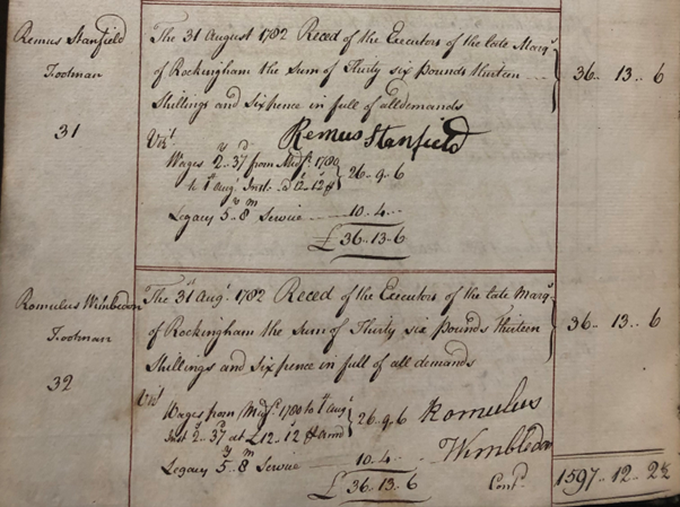 Remus Stanfield
Footman
31
The 31 August 1782 Reced of the Executors of the late Marqs
of Rockingham the Sum of Thirty six pounds thirteen
Shillings and Sixpence in full of all demands
36.. 13.. 6
Remus Stanfield
Vizt
Wages 2 y.. 37 d from Midsr 1780
to 1st Augt Inst. @ 12..12 26..9..6
Legacy 5 y.. 8 m Service 10..4..
£ 36..13..6
Romulus Wimbledon
Footman
32
The 31st Augt 1782 Reced of the Executors of the late Marqs
of Rockingham the Sum of Thirty six pounds thirteen
Shillings and Sixpence in full of all demands
36.. 13.. 6
Vizt
Wages from Midsr 1780 to 1st Augt
Inst 2 y.. 37 d at £12..12 26..9..6
Romulus
Wimbledon
Legacy 5 y.. 8 m Service 10..4..
£ 36..13..6
1597.. 12.. 2½